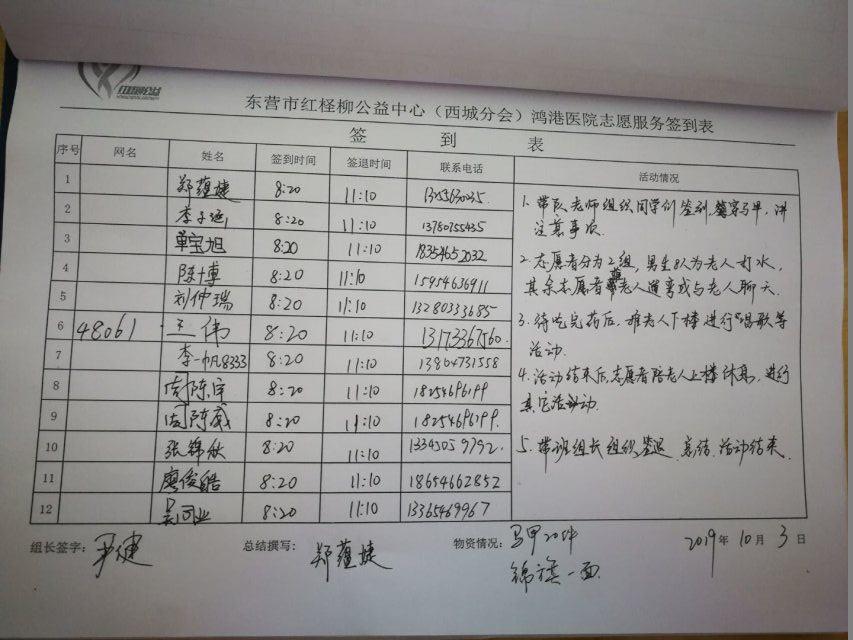 红柽柳公益
东营市红柽柳公益中心（西城分会）鸿港医院志愿服务签到表
签 到 表
序号 网名 姓名 签到时间 签退时间 联系电话 活动情况
1 郑蕴婕 8:20 11:10
2 李子涵 8:20 11:10 13780755435
3 单宝旭 8:20 11:10 18354652032
4 陈博 8:20 11:10 15954636911
5 刘仲瑞 8:20 11:10 13280333685
6 48061 王伟 8:20 11:10 13173367560
7 李一帆8333 8:20 11:10 13864731558
8 周陈宇 8:20 11:10 18254696199
9 周陈威 8:20 11:10 18254696199
10 张锦秋 8:20 11:10 13345059792
11 廖俊皓 8:20 11:10 18654662852
12 吴同业 8:20 11:10 13365469967
1. 带队老师组织同学们签到，穿马甲，讲
注意事项.
2. 志愿者分为2组，男生8人为老人打水，
其余志愿者老人道事或与老人聊天.
3. 待吃完药后，推老人下楼进行唱歌等
活动.
4. 活动结束后，志愿者陪老人上楼休息，进行
其它活动.
5. 带班组长组织签退，总结，活动结束.
组长签字： 尹健 总结撰写： 郑蕴婕 物资情况： 马甲20件 2019年10月3日
锦旗一面